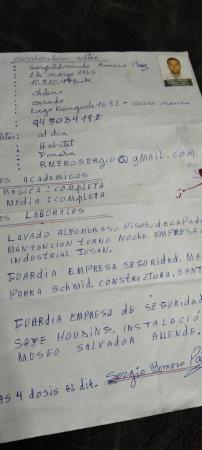 curriculum vitae
Sergio Romero Paez
2 de marzo 1965
10.320.
chileno
casado
Lago Banguelo 1632 -
94303419
al dia
Habitat
Fonasa
RMEROSERGIO@gmail.com
ES ACADEMICOS
BASICA: COMPLETA
MEDIA: COMPLETA
ES LABORALES
LAVADO ALFOMBRAS, PISOS, DECAPADO
MANTENCION TURNO NOCHE. EMPRESA
INDUSTRIAL JUSAN.
GUARDIA EMPRESA SEGURIDAD. MA
PARRA SCHMID, CONSTRUCTORA, SANT
GUARDIA EMPRESA DE SEGURIDAD
SAFE HOUDING, INSTALACIÓ
MUSEO SALVADOR ALLENDE.
AS 4 DOSIS AL DIA. Sergio Romero Pa